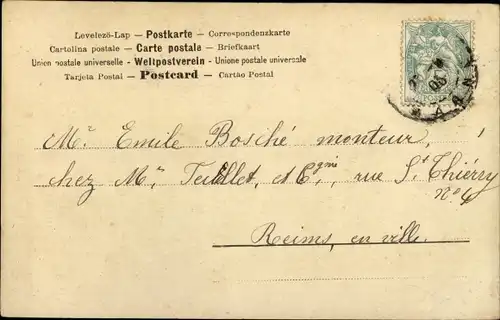 Levelező-Lap — Postkarte — Correspondenzkarte
Cartolina postale — Carte postale — Briefkaart
Union postale universelle — Weltpostverein — Unione postale universale
Tarjeta Postal — Postcard — Cartão Postal
Mr. Emile Bosché monteur,
chez Mr. Teillet, et Cgnie, rue St Thiérry
No 4
Reims, en ville.